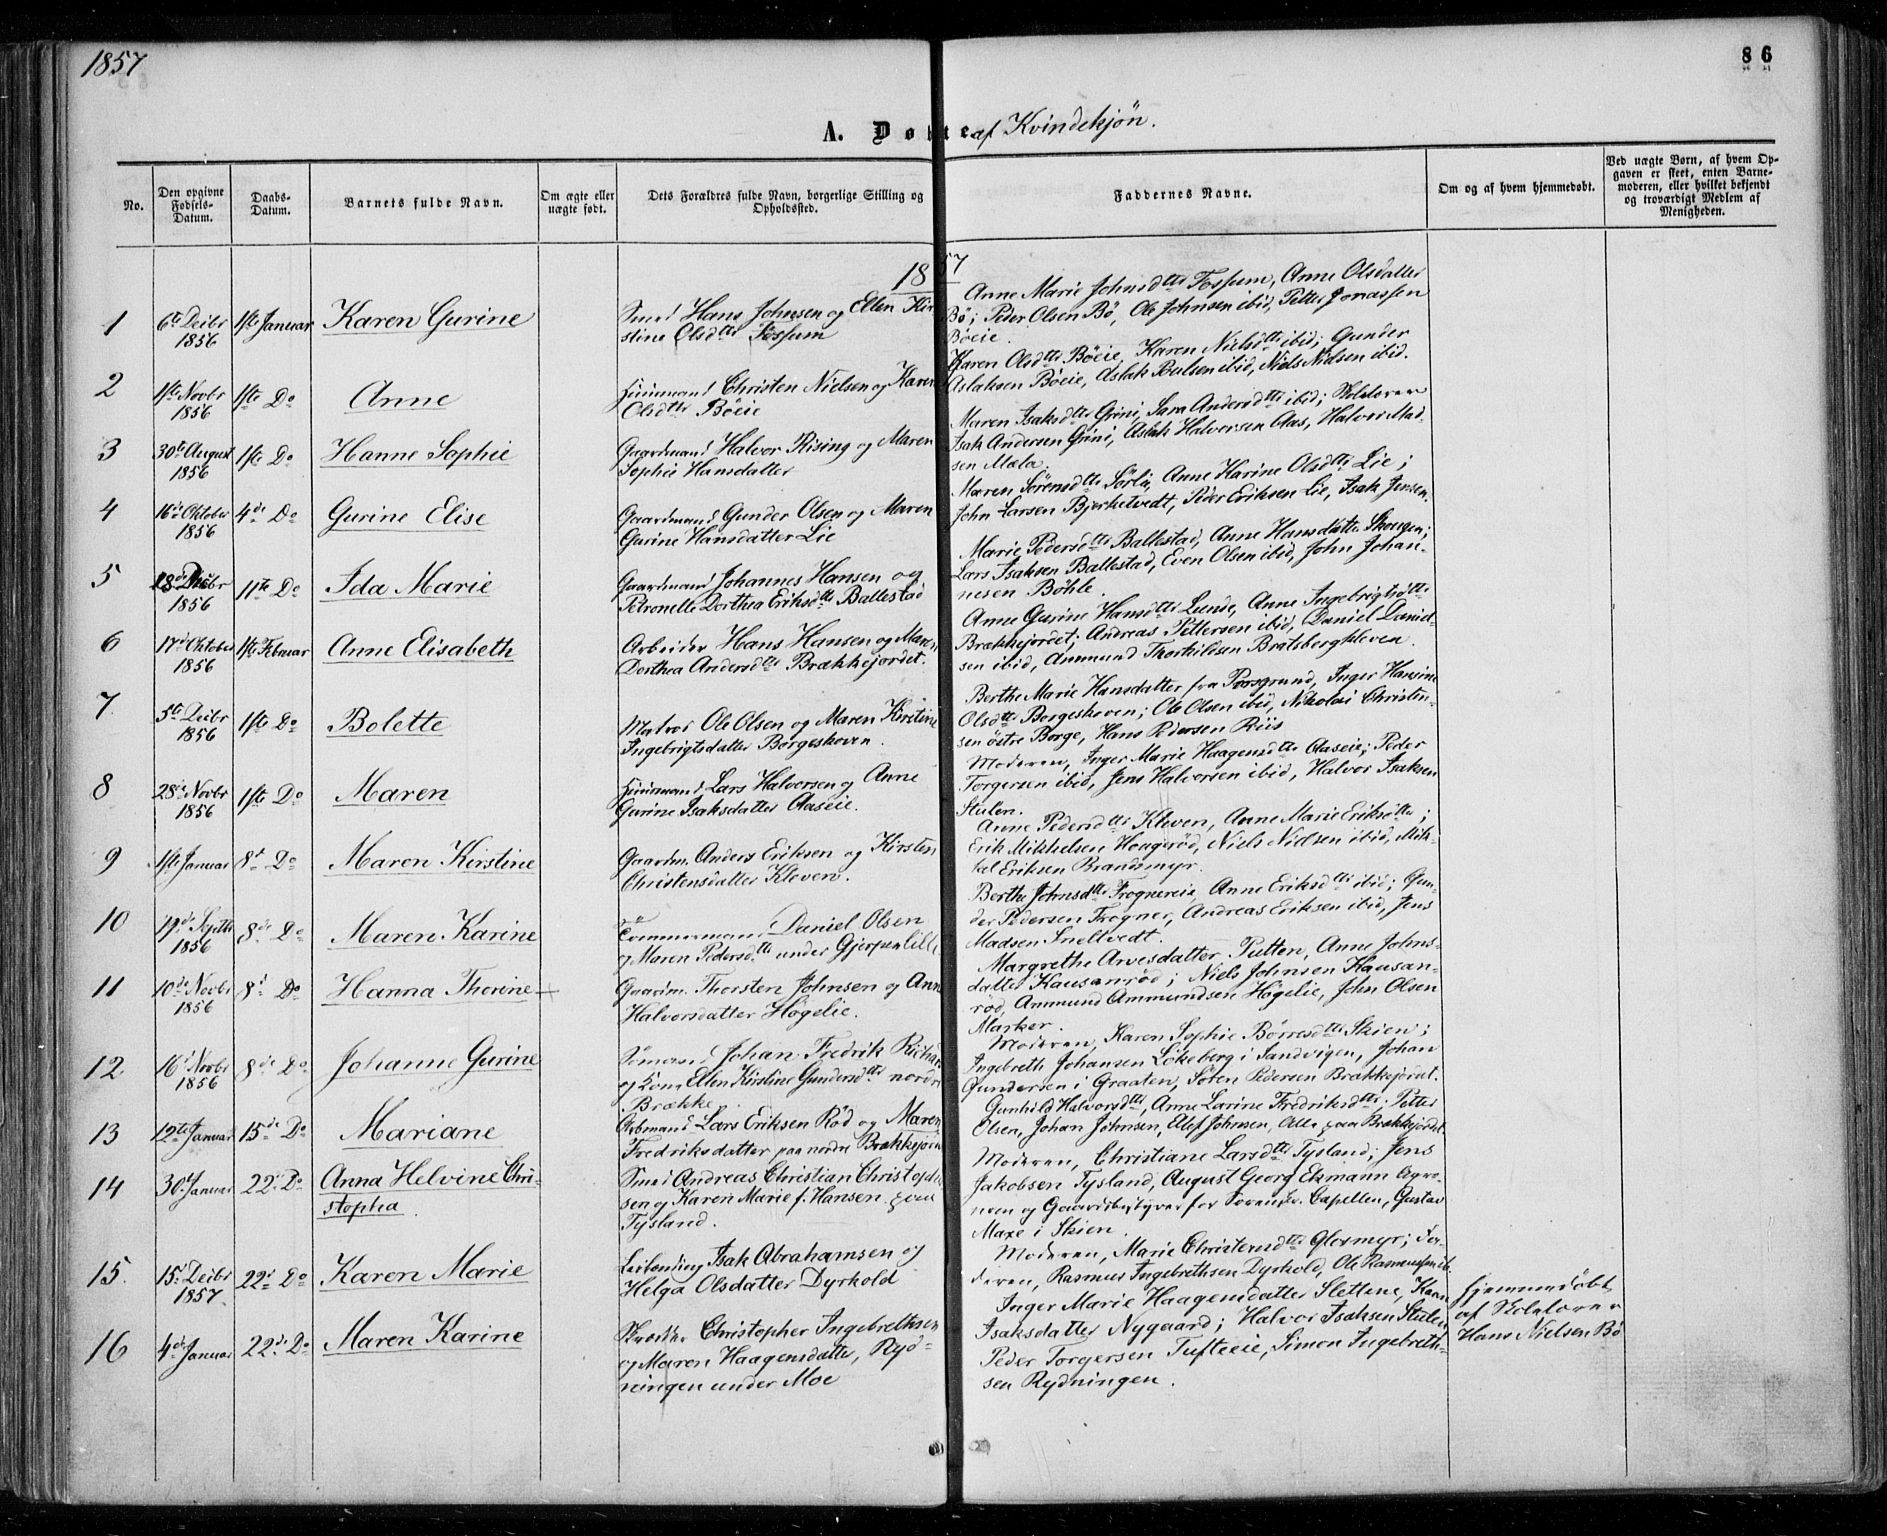 1857
86
A. Døbte af Kvindekjön.
No.
Den opgivne Fødsels-Datum.
Daabs-Datum.
Barnets fulde Navn.
Om ægte eller uægte født.
Dets Forældres fulde Navn, borgerlige Stilling og Opholdssted.
Faddernes Navne.
Om og af hvem hjemmedøbt.
Ved uægte Børn, af hvem Opgaven er skeet, enten Barnemoderen, eller hvilket bekjendt og troværdigt Medlem af Menigheden.
1857
1
6te Decbr 1856
1ste Januar
Karen Gurine
Smed Hans Johnsen og Ellen Kir-
stine Olsdtr Fossum
Anne Marie Johnsdtr Fossum, Anne Olsdatter
Bö; Peder Olsen Bö, Ole Johnsen ibid, Petter Jonassen
Böeie.
2
1ste Novbr 1856
1ste Do
Anne
Huusmand Christen Nielsen og Karen
Olsdtr Böeie
Karen Olsdtr Böeie, Karen Nielsdtr ibid; Gunder
Aslaksen Böeie, Aslak Poulsen ibid, Niels Nielsen ibid.
3
30te August 1856
1ste Do
Hanne Sophie
Gaardmand Halvor Rising og Maren
Sophie Hansdatter
Maren Isaksdtr Grini, Sara Andersdtr ibid; Skolelærer
Isak Andersen Grini, Aslak Halvorsen Aas, Halvor Mad-
sen Mæla.
4
16de Oktober 1856
4de Do
Gurine Elise
Gaardmand Gunder Olsen og Maren
Gurine Hansdatter Lie
Maren Sörensdtr Sörli, Anne Karine Olsdtr Lie;
John Larsen Bjerketvedt, Peder Eriksen Lie, Isak Jensen.
5
18de Decbr 1856
11te Do
Ida Marie
Gaardmand Johannes Hansen og
Petronelle Dorthea Eriksdtr Ballestad
Marie Pedersdtr Ballestad, Anne Hansdatter Skougen;
Lars Isaksen Ballestad, Even Olsen ibid, John Johan-
nesen Böhle.
6
17de Oktober 1856
1ste Februar
Anne Elisabeth
Arbeider Hans Hansen og Maren
Dorthea Andersdtr Brækkejordet.
Anne Gurine Hansdtr Lunde, Anne Ingebrigtsdtr
Brækkejordet; Andreas Pettersen ibid, Daniel Daniel-
sen ibid, Ammund Thorkildsen Bratsbergkleven.
7.
5te Decbr 1856
1ste Do
Bolette
Matros Ole Olsen og Maren Kirstine
Ingebrigtsdatter Borgeskoven.
Berthe Marie Hansdatter fra Porsgrund, Inger Hansine
Olsdtr Borgeskoven; Ole Olsen ibid, Nikolai Christen-
sen östre Borge, Hans Pedersen Riis
8
28de Novbr 1856
1ste Do
Maren
Huusmand Lars Halvorsen og Anne
Gurine Isaksdatter Aaseie.
Moderen, Inger Marie Haagensdtr Aaseie; Peder
Torgersen ibid, Jens Halvorsen ibid, Halvor Isaksen
Stulen.
9
1ste Januar
8de Do
Maren Kirstine
Gaardm. Anders Eriksen og Kirsten
Christensdatter Kleven.
Anne Pedersdtr Kleven, Anne Marie Eriksdtr;
Erik Mikkelsen Haagerød, Niels Nielsen ibid, Mik-
kel Eriksen Brandsmyr.
10
19de Septbr 1856
8de Do
Maren Karine
Tömmermand Daniel Olsen
og Maren Pedersdtr under Gjerpen lille
Berthe Johnsdtr Frognereie, Anne Eriksdtr ibid; Gun-
der Pedersen Frogner, Andreas Eriksen ibid, Jens
Madsen Sneltvedt.
11
10de Novbr 1856
8de Do
Hanna Thorine
Gaardm. Thorsten Johnsen og Anne
Halvorsdatter Högelie.
Margrethe Arvesdatter Putten, Anne Johns-
datter Kausanröd; Niels Johnsen Kausan-
röd, Ammund Ammundsen Högelie, John Olsen
Marker.
12
16de Novbr 1856
8de Do
Johanne Gurine
Sömand Johan Fredrik Richard
og Kone Ellen Kirstine Gundersdtr nordre
Brække
Moderen, Karen Sophie Börresdtr Skien;
Ingebreth Johansen Lökeberg i Sandvigen, Johan
Gundersen i Graaten, Sören Pedersen Brækkejordet.
13
12te Januar
15de Do
Mariane
Arbmand Lars Eriksen Röd og Maren
Fredriksdatter paa nordre Brækkejordet
Gunhild Halvorsdtr, Anne Larine Fredriksdtr; Petter
Olsen, Johan Johnsen, Alef Johnsen, Alle paa Brækkejordet.
14
30de Januar
22de Do
Anna Helvine Chri-
stopha
Smed Andreas Christian Christopher-
sen og Karen Marie f. Hansen paa
Tysland.
Moderen, Christiane Larsdtr Tysland; Jens
Jakobsen Tysland, August Georg Ekmann Agro-
nom og Gaardsbestyrer for Capellen, Gustav
Maxe i Skien.
15.
15de Decbr 1857
22de Do
Karen Marie
Leilending Isak Abrahamsen og
Helga Olsdatter Dyrkold
Moderen, Marie Christensdtr Glosmyr; Fa-
deren, Rasmus Ingebrethsen Dyrkold, Ole Rasmussen ib.
16
4de Januar
22de Do
Maren Karine
Skrædder Christopher Ingebrethsen
og Maren Haagensdatter, Ryd-
ningen under Moe
Inger Marie Haagensdatter Slettene, Karen
Isaksdatter Nygaard; Halvor Isaksen Stulen,
Peder Torgersen Tufteeie, Simon Ingebreth-
sen Rydningen.
Hjemmedöbt
af Skolelærer
Hans Nielsen Bö